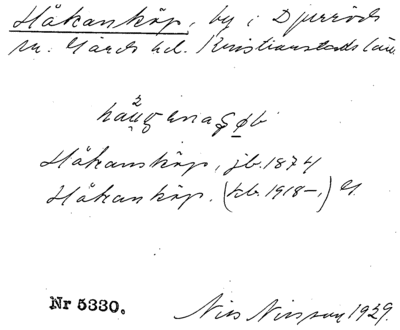 Håkansköp, by i Djurröds
sn. Gärds hd. Kristianstads län
Håkansköp, jb. 1874
Håkanköp. (kb. 1918–,)
Nr 5330.
Nils Nilsson 1929.